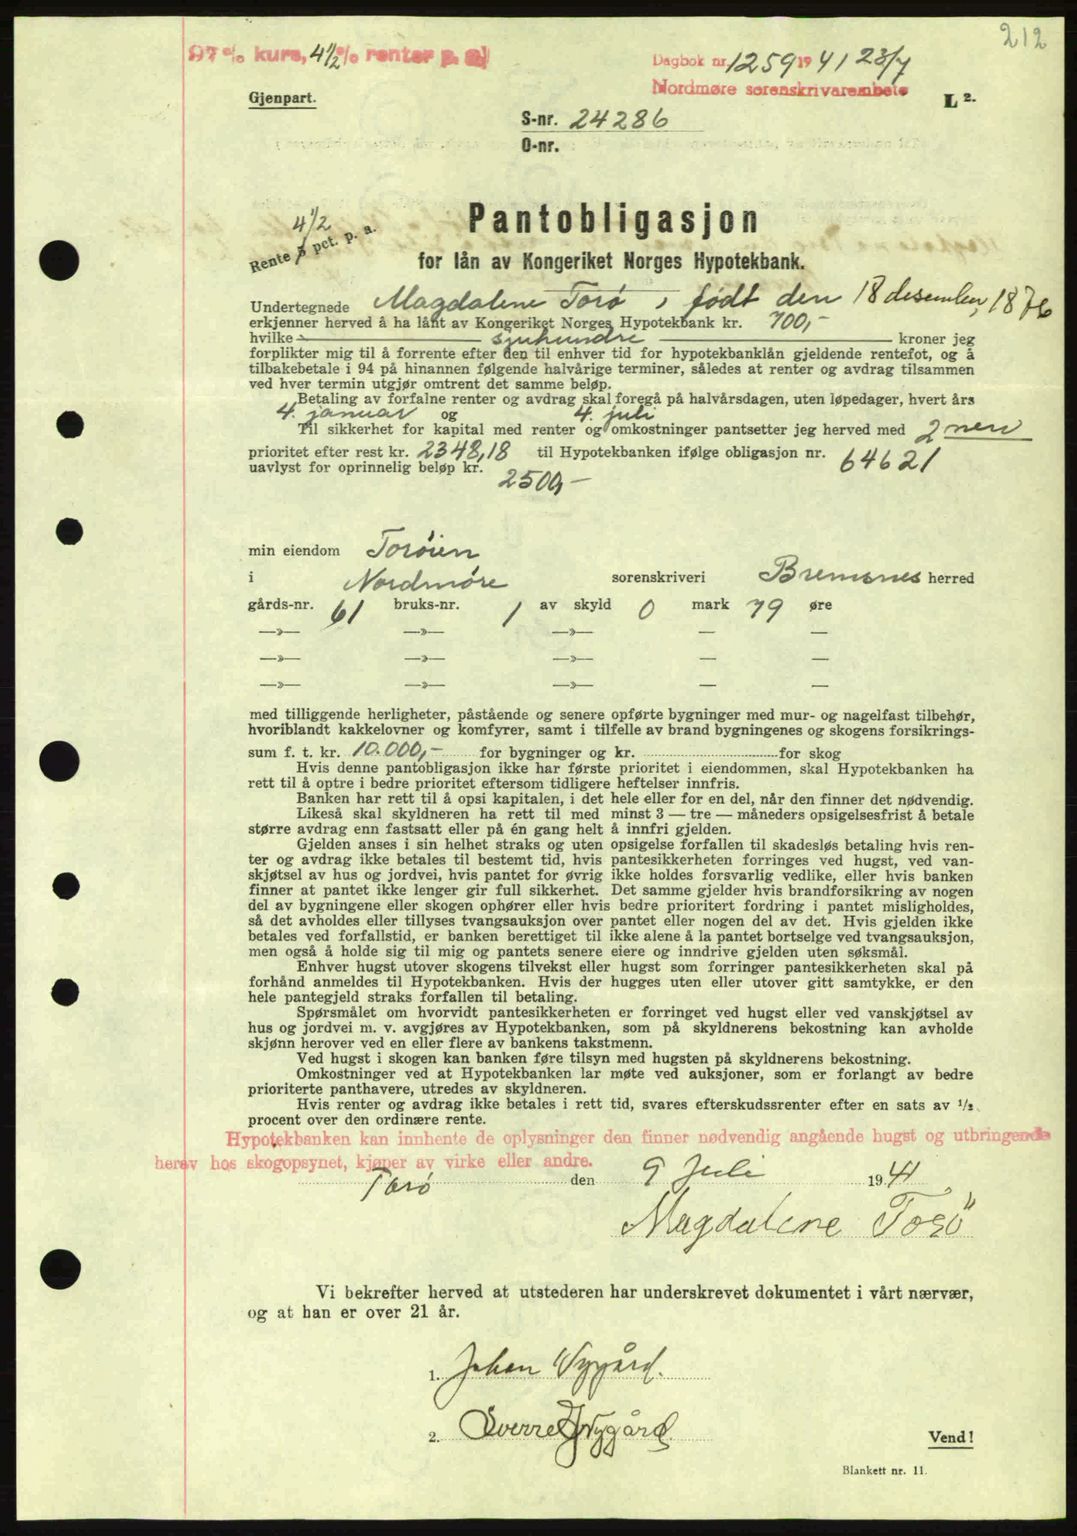 212
97% kurs, 4 1/2 % renter p. a.
Dagbok nr. 1259 1941 23/7
Nordmøre sorenskrivarembete
Gjenpart.
L 2.
S-nr. 24286
O-nr.
4 1/2
Rente 5 pct. p. a.
Pantobligasjon
for lån av Kongeriket Norges Hypotekbank.
Undertegnede Magdalene Torø, født den 18 desember, 1876
erkjenner herved å ha lånt av Kongeriket Norges Hypotekbank kr. 700,-
hvilke — sjuhundre — kroner jeg
forplikter mig til å forrente efter den til enhver tid for hypotekbanklån gjeldende rentefot, og å
tilbakebetale i 94 på hinannen følgende halvårige terminer, således at renter og avdrag tilsammen
ved hver termin utgjør omtrent det samme beløp.
Betaling av forfalne renter og avdrag skal foregå på halvårsdagen, uten løpedager, hvert års
4. januar og 4. juli
Til sikkerhet for kapital med renter og omkostninger pantsetter jeg herved med 2nen
prioritet efter rest kr. 2348,18 til Hypotekbanken ifølge obligasjon nr. 64621
uavlyst for oprinnelig beløp kr. 2500,-
min eiendom Torøien
i Nordmøre sorenskriveri Bremsnes herred
gårds-nr. 61 bruks-nr. 1 av skyld 0 mark 79 øre
—»— —»— —»— — —
—»— —»— —»— — —
—»— —»— —»— — —
med tilliggende herligheter, påstående og senere opførte bygninger med mur- og nagelfast tilbehør,
hvoriblandt kakkelovner og komfyrer, samt i tilfelle av brand bygningenes og skogens forsikrings-
sum f. t. kr. 10.000,- for bygninger og kr. for skog
Hvis denne pantobligasjon ikke har første prioritet i eiendommen, skal Hypotekbanken ha
rett til å optre i bedre prioritet eftersom tidligere heftelser innfris.
Banken har rett til å opsi kapitalen, i det hele eller for en del, når den finner det nødvendig.
Likeså skal skyldneren ha rett til med minst 3 — tre — måneders opsigelsesfrist å betale
større avdrag enn fastsatt eller på én gang helt å innfri gjelden.
Gjelden anses i sin helhet straks og uten opsigelse forfallen til skadesløs betaling hvis ren-
ter og avdrag ikke betales til bestemt tid, hvis pantesikkerheten forringes ved hugst, ved van-
skjøtsel av hus og jordvei, hvis pantet for øvrig ikke holdes forsvarlig vedlike, eller hvis banken
finner at pantet ikke lenger gir full sikkerhet. Det samme gjelder hvis brandforsikring av nogen
del av bygningene eller skogen ophører eller hvis bedre prioritert fordring i pantet misligholdes,
så det avholdes eller tillyses tvangsauksjon over pantet eller nogen del av det. Hvis gjelden ikke
betales ved forfallstid, er banken berettiget til ikke alene å la pantet bortselge ved tvangsauksjon,
men også å holde sig til mig og pantets senere eiere og inndrive gjelden uten søksmål.
Enhver hugst utover skogens tilvekst eller hugst som forringer pantesikkerheten skal på
forhånd anmeldes til Hypotekbanken. Hvis der hugges uten eller utover gitt samtykke, er den
hele pantegjeld straks forfallen til betaling.
Spørsmålet om hvorvidt pantesikkerheten er forringet ved hugst eller ved vanskjøtsel av
hus og jordvei m. v. avgjøres av Hypotekbanken, som på skyldnerens bekostning kan avholde
skjønn herover ved en eller flere av bankens takstmenn.
Ved hugst i skogen kan banken føre tilsyn med hugsten på skyldnerens bekostning.
Omkostninger ved at Hypotekbanken lar møte ved auksjoner, som er forlangt av bedre
prioriterte panthavere, utredes av skyldneren.
Hvis renter og avdrag ikke betales i rett tid, svares efterskuddsrenter efter en sats av 1/2
procent over den ordinære rente.
Hypotekbanken kan innhente de oplysninger den finner nødvendig angående hugst og utbringende
herav hos skogopsynet, kjøper av virke eller andre.
Torø den 9 Juli 1941
Magdalene Torö
Vi bekrefter herved at utstederen har underskrevet dokumentet i vårt nærvær,
og at han er over 21 år.
1. Johan Nygård.
2. Sverre J Nygård
Vend!
Blankett nr. 11.